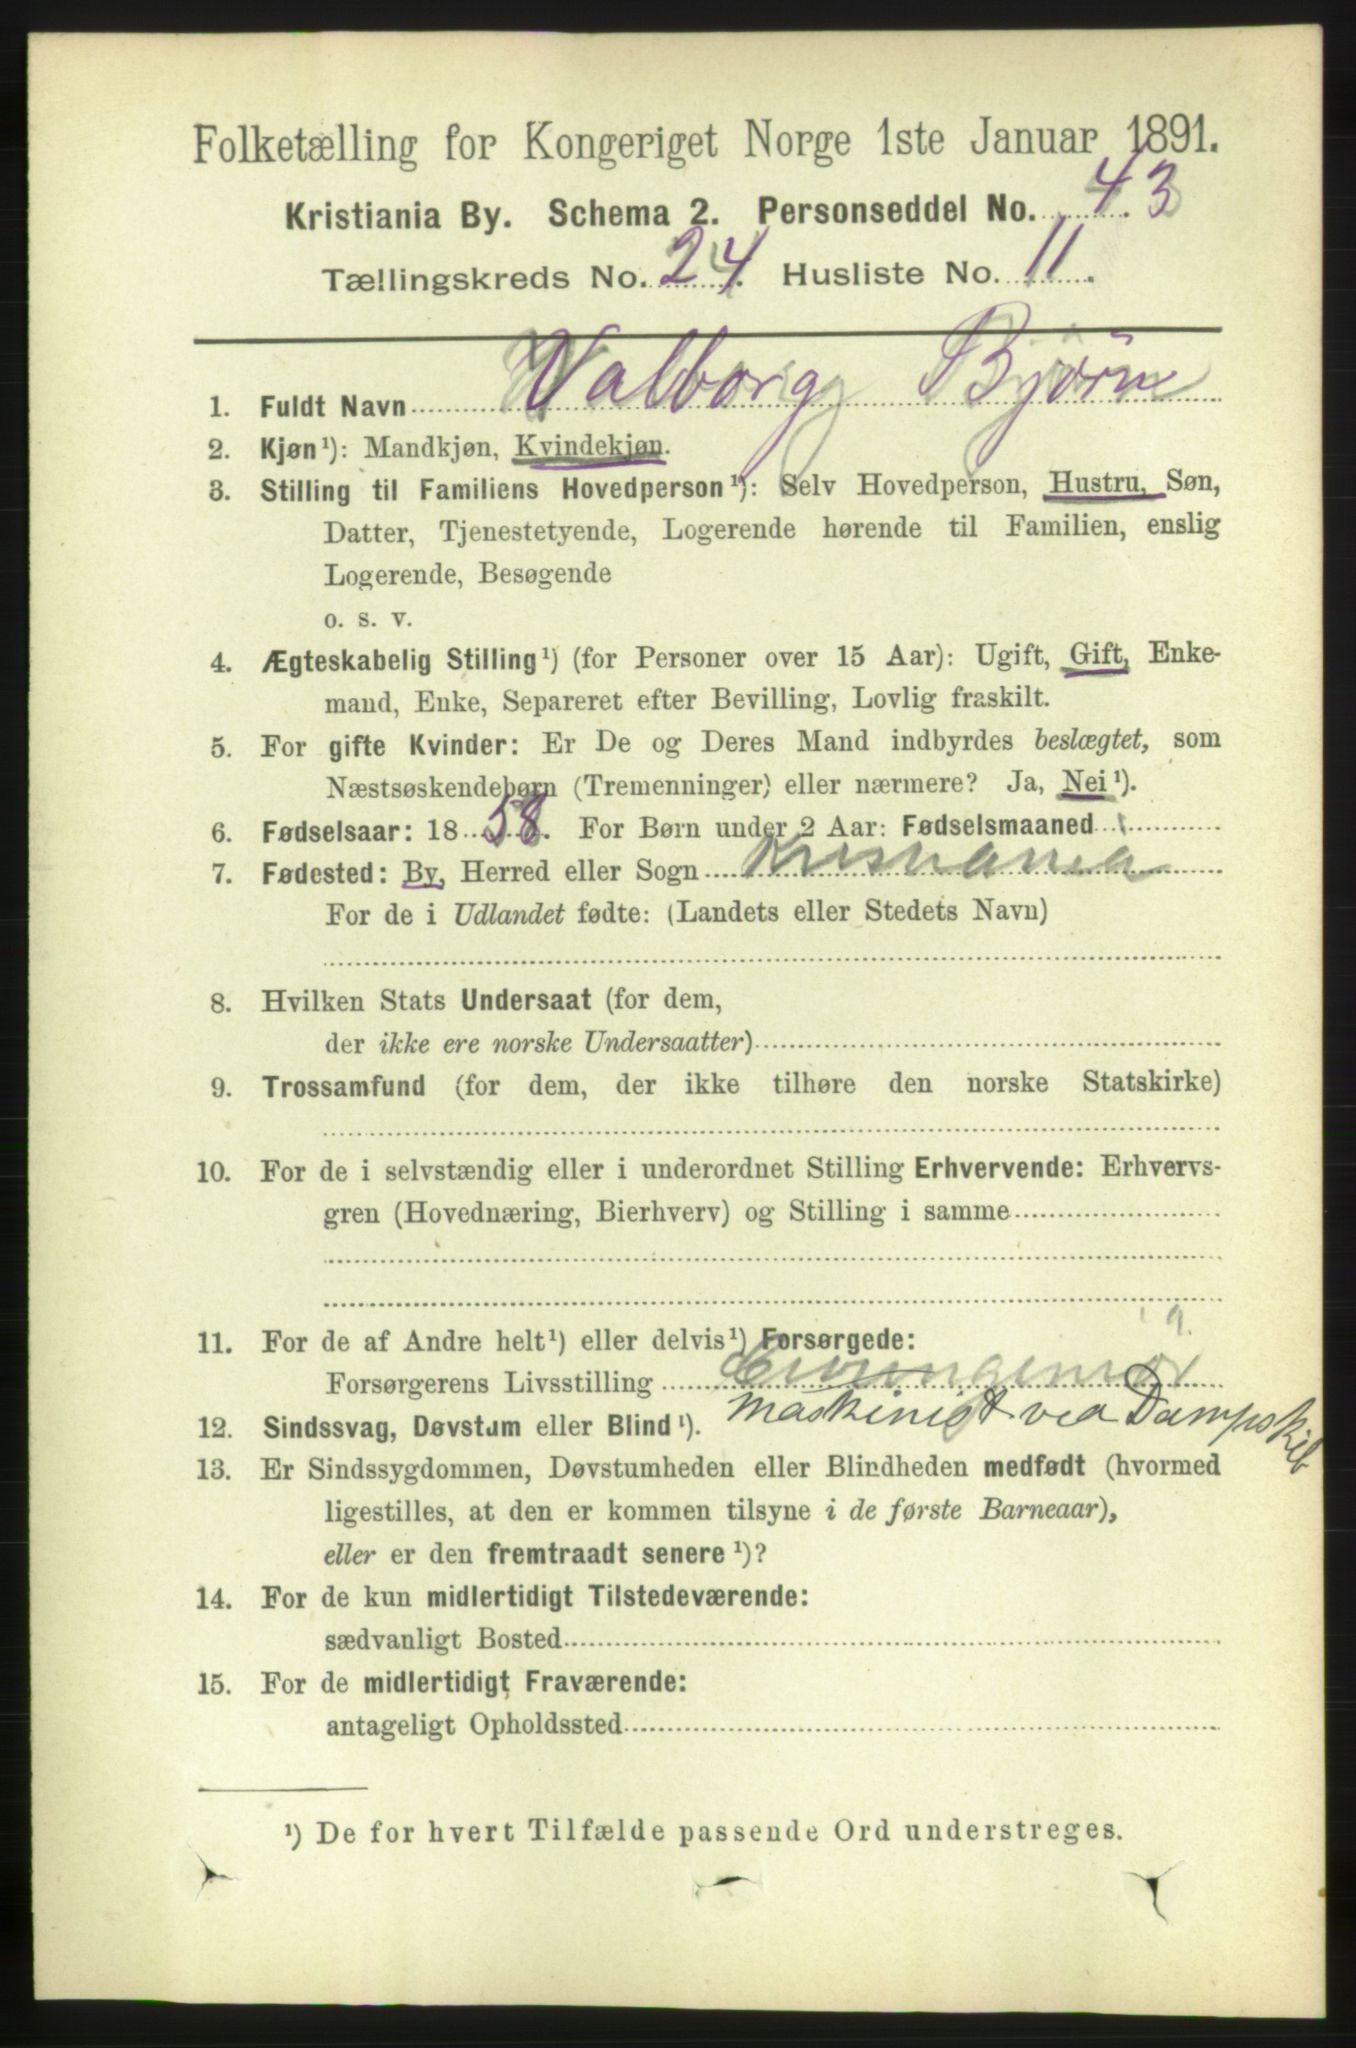 Folketælling for Kongeriget Norge 1ste Januar 1891.
Kristiania By. Schema 2. Personseddel No. 43
Tællingskreds No. 24. Husliste No. 11.
1. Fuldt Navn Valborg Bjørn
2. Kjøn¹): Mandkjøn, Kvindekjøn.
3. Stilling til Familiens Hovedperson¹): Selv Hovedperson, Hustru, Søn,
Datter, Tjenestetyende, Logerende hørende til Familien, enslig
Logerende, Besøgende
o. s. v.
4. Ægteskabelig Stilling¹) (for Personer over 15 Aar): Ugift, Gift, Enke-
mand, Enke, Separeret efter Bevilling, Lovlig fraskilt.
5. For gifte Kvinder: Er De og Deres Mand indbyrdes beslægtet, som
Næstsøskendebørn (Tremenninger) eller nærmere? Ja, Nei¹).
6. Fødselsaar: 1858. For Børn under 2 Aar: Fødselsmaaned
7. Fødested: By, Herred eller Sogn Kristiania
For de i Udlandet fødte: (Landets eller Stedets Navn)
8. Hvilken Stats Undersaat (for dem,
der ikke ere norske Undersaatter)
9. Trossamfund (for dem, der ikke tilhøre den norske Statskirke)
10. For de i selvstændig eller i underordnet Stilling Erhvervende: Erhvervs-
gren (Hovednæring, Bierhverv) og Stilling i samme
11. For de af Andre helt¹) eller delvis¹) Forsørgede:
Forsørgerens Livsstilling
Maskinist ved Dampskib
12. Sindssvag, Døvstum eller Blind¹).
13. Er Sindssygdommen, Døvstumheden eller Blindheden medfødt (hvormed
ligestilles, at den er kommen tilsyne i de første Barneaar),
eller er den fremtraadt senere¹)?
14. For de kun midlertidigt Tilstedeværende:
sædvanligt Bosted
15. For de midlertidigt Fraværende:
antageligt Opholdssted
¹) De for hvert Tilfælde passende Ord understreges.